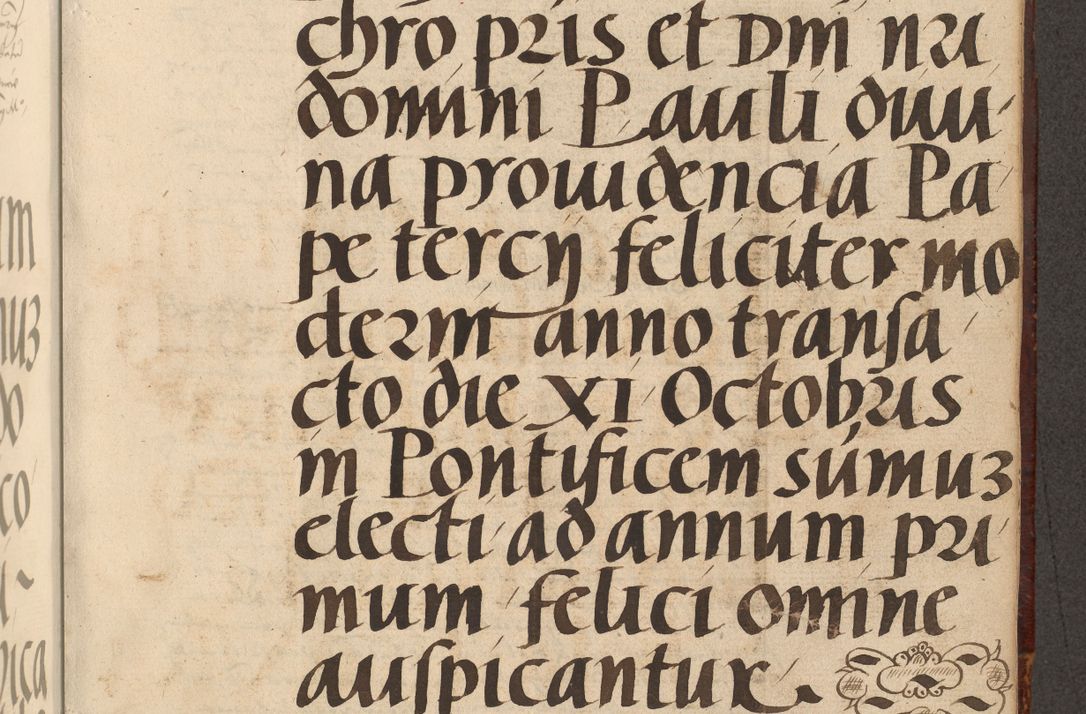 chro pris et Dm nri
domini Pauli diui
na prouidencia Pa
pe tercij feliciter mo
derni anno transa
cto die XI Octobris
in Pontificem sumuȝ
electi ad annum pri
mum felici omine
auspicantur